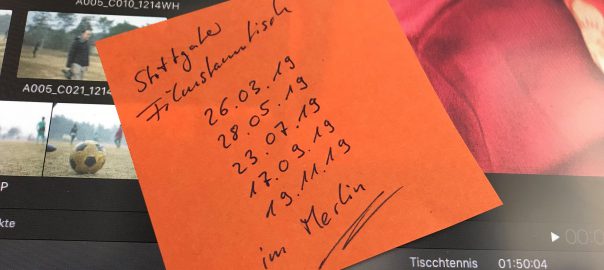 A005_C010_1214WH
A005_C021_1214
P
kte
Stuttgarter
Filmstammtisch
26.03.19
28.05.19
23.07.19
17.09.19
19.11.19
im Merlin
Tiscchtennis 01:50:04